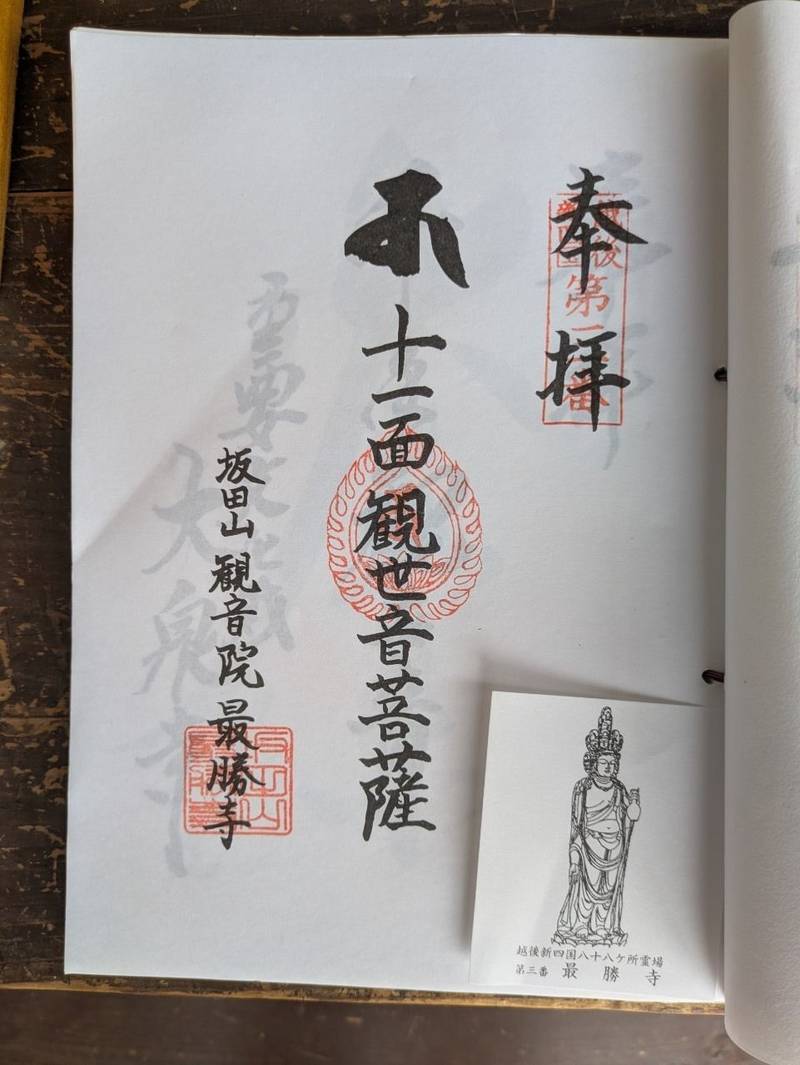 奉拝
十一面観世音菩薩
坂田山観音院最勝寺
越後新四国八十八ケ所霊場
第三番 最勝寺